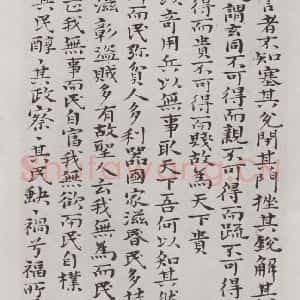 言者不知塞其兌閉其門挫其銳解其
謂玄同不可得而親不可得而疏不可得
得而貴不可得而賤故為天下貴
以奇用兵以無事取天下吾何以知其然
而民彌貧人多利器國家滋昏民多技
滋彰盜賊多有故聖人云我無為而民
正我無事而民自富我無欲而民自樸
其民醇〻其政察〻其民缺〻禍兮福所
Shufawang.CN